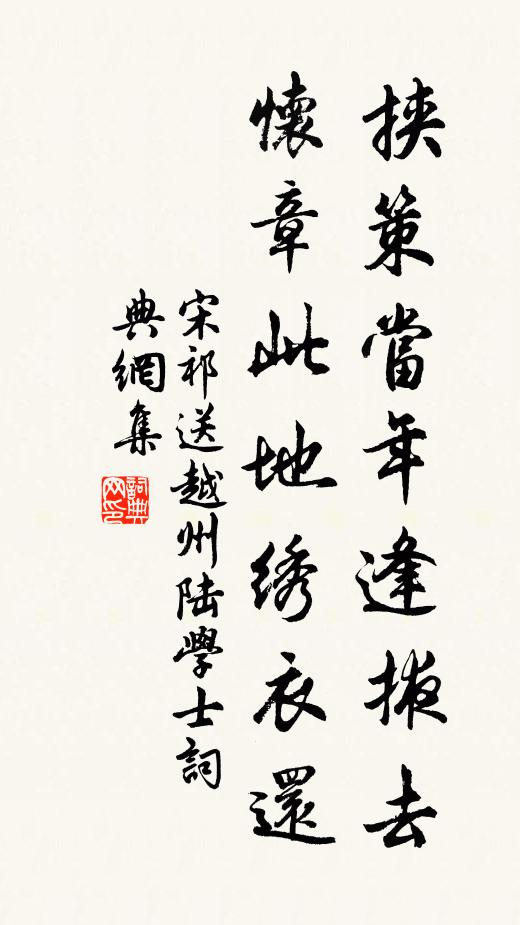 挟策當年逢掖去
懷章此地绣衣還
宋祁送越州陆學士詞
典網集
詞典网印